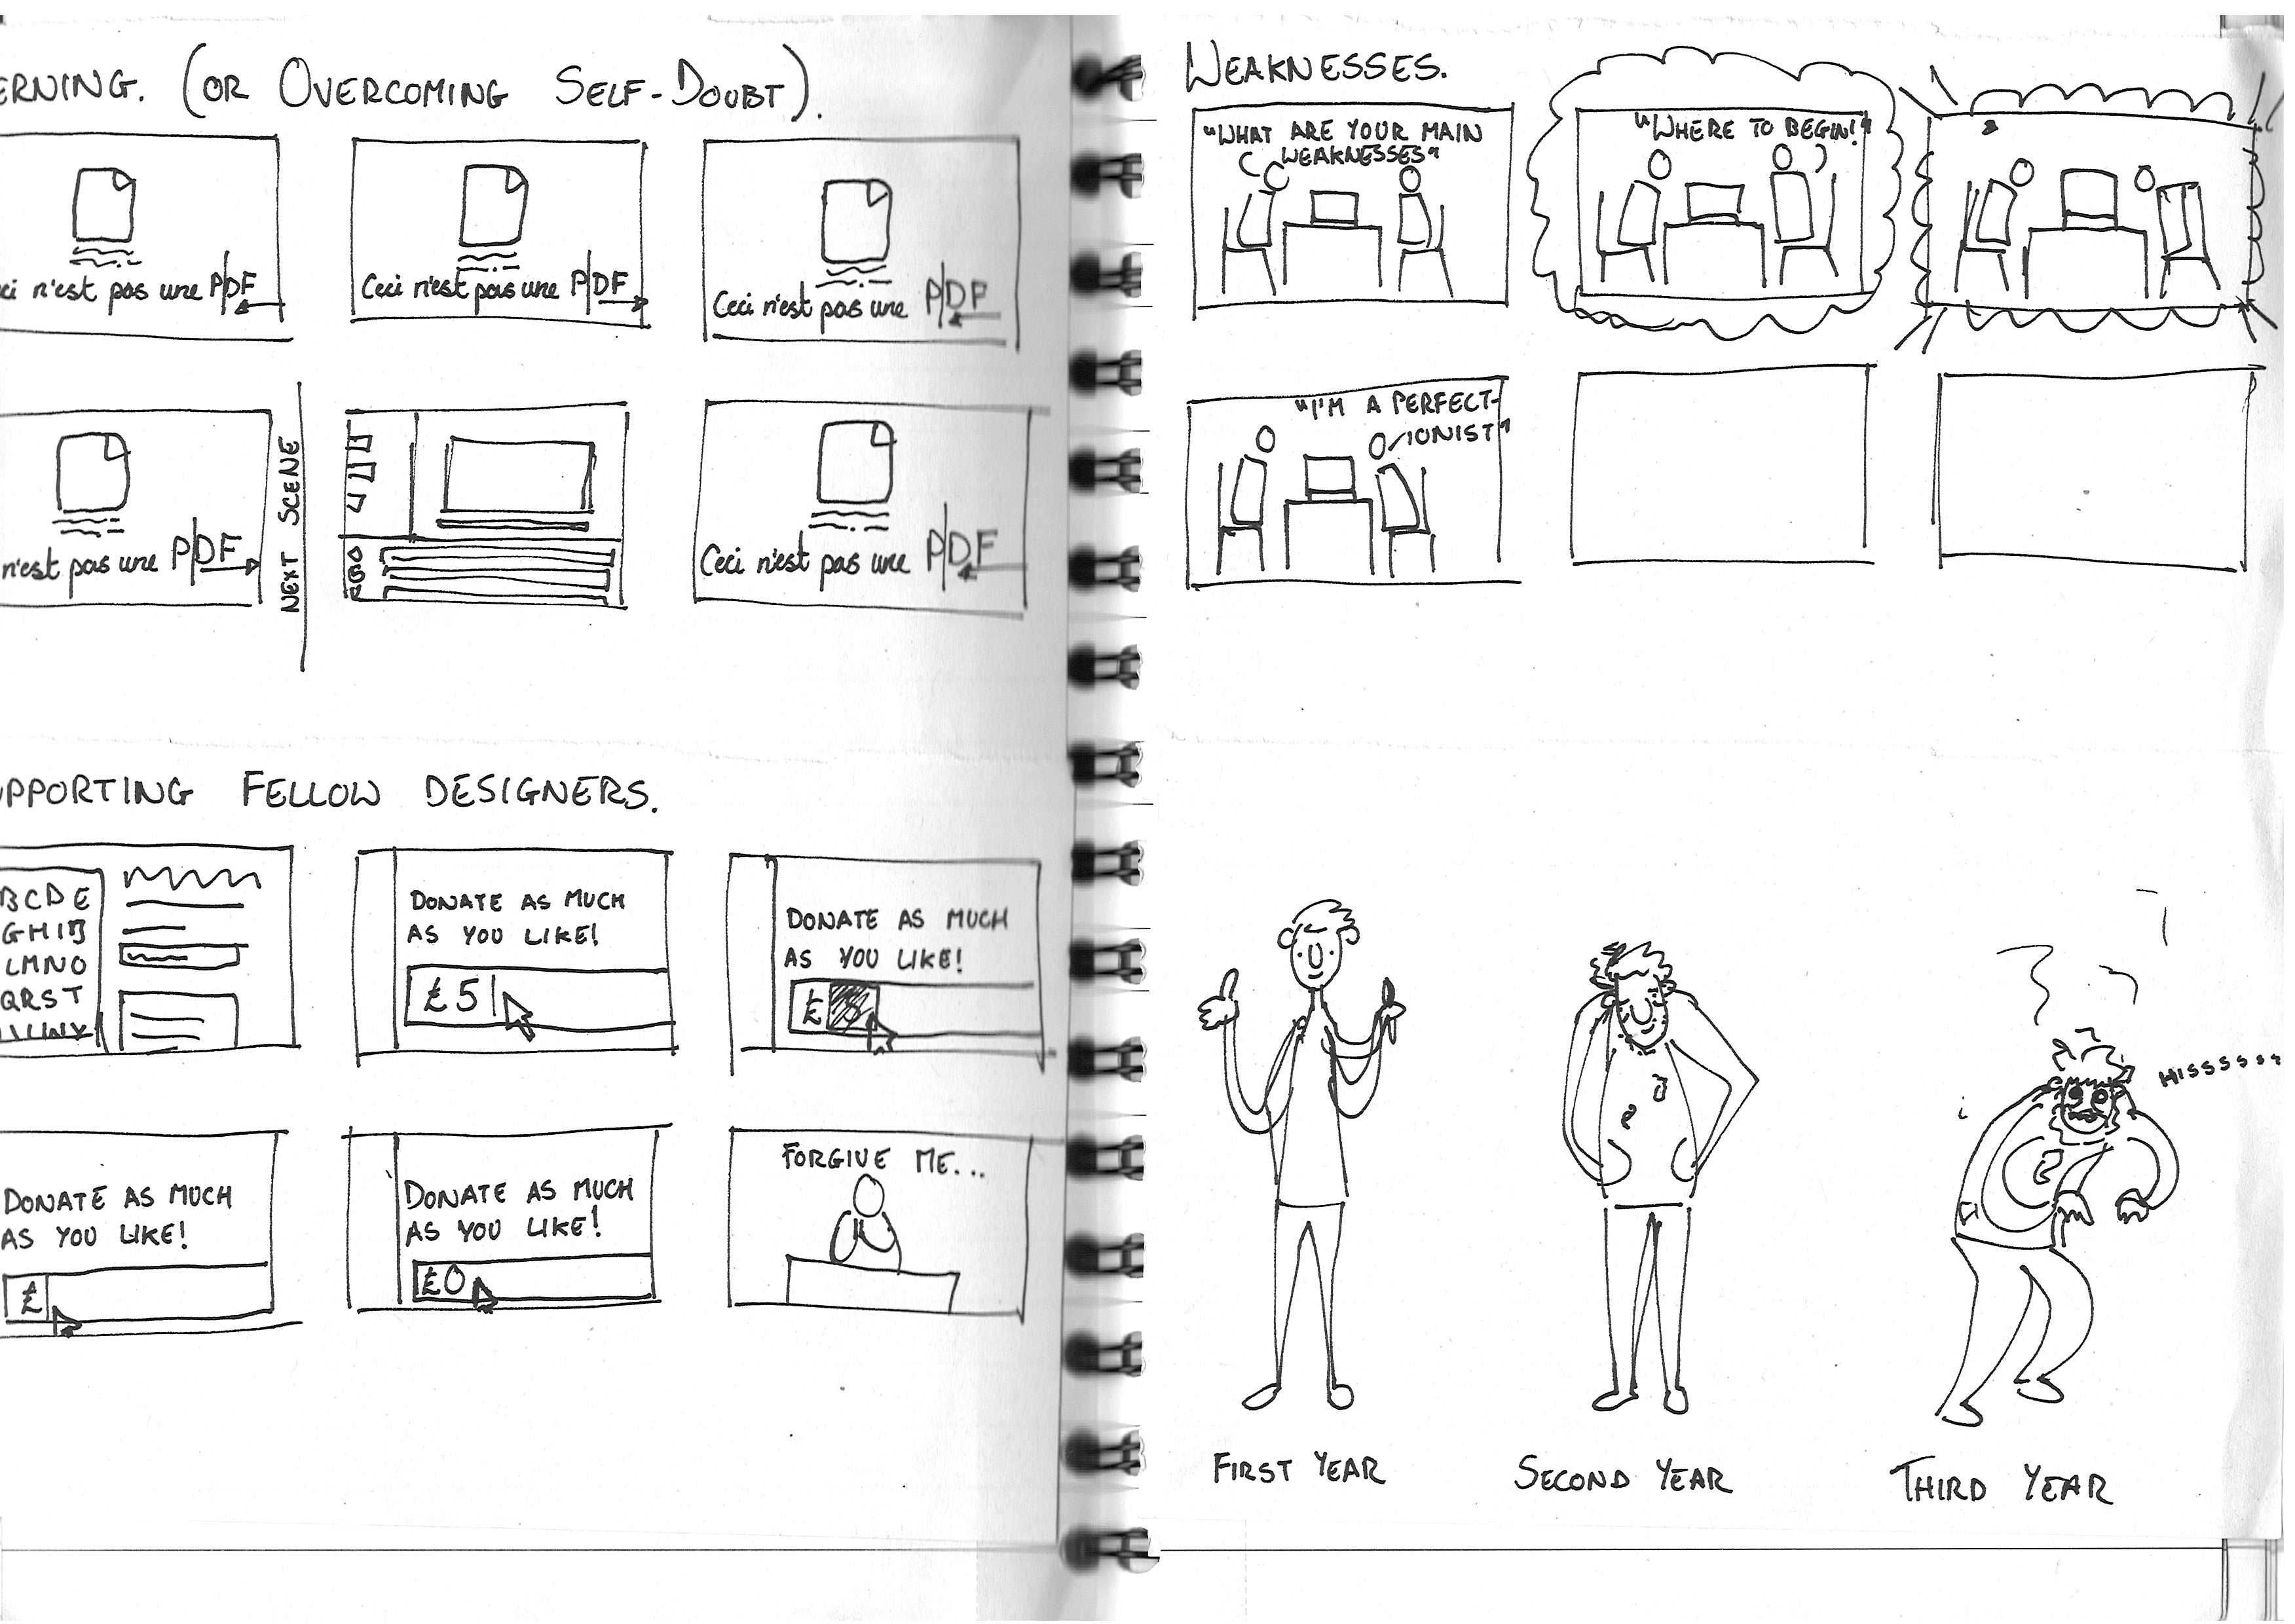 ERNING. (OR OVERCOMING SELF-DOUBT).
ci n'est pas une PDF
Ceci n'est pas une PDF
Ceci n'est pas une PDF
n'est pas une PDF
NEXT SCENE
Ceci n'est pas une PDF
UPPORTING FELLOW DESIGNERS.
BCDE
GHIJ
LMNO
QRST
DONATE AS MUCH
AS YOU LIKE!
£5
DONATE AS MUCH
AS YOU LIKE!
£5
DONATE AS MUCH
AS YOU LIKE!
£
DONATE AS MUCH
AS YOU LIKE!
£0
FORGIVE ME...
WEAKNESSES.
"WHAT ARE YOUR MAIN
WEAKNESSES"
"WHERE TO BEGIN!"
"I'M A PERFECT-
IONIST"
HISSSSSSS
FIRST YEAR
SECOND YEAR
THIRD YEAR